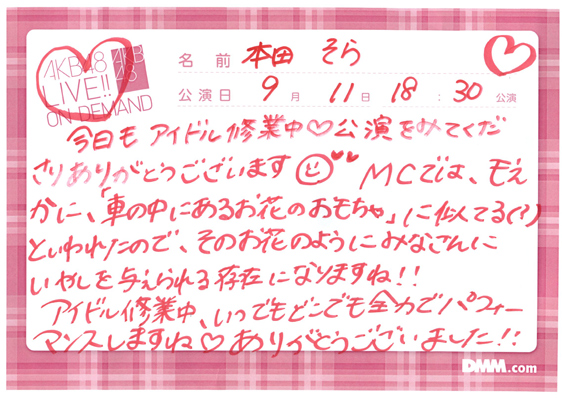 AKB48
LIVE!!
ON DEMAND
AKB
48
名前 本田 そら
公演日 9月 11日 18:30 公演
今日も アイドル修業中♡公演をみてくだ
さりありがとうございます
MCでは、もえ
かに、「車の中にあるお花のおもちゃ」に似てる(?)
といわれたので、そのお花のようにみなさんに
いやしを与えられる存在になりますね!!
アイドル修業中、いつでもどこでも全力でパフォー
マンスしますね♡ありがとうございました!!
DMM.com